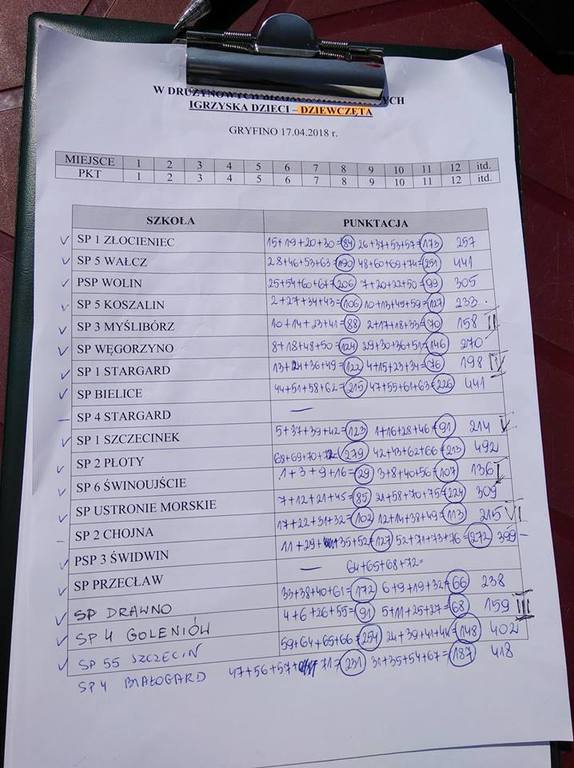 IGRZYSKA DZIECI – DZIEWCZĘTA
GRYFINO 17.04.2018 r.
MIEJSCE 1 2 3 4 5 6 7 8 9 10 11 12 itd.
PKT 1 2 3 4 5 6 7 8 9 10 11 12 itd.
SZKOŁA PUNKTACJA
SP 1 ZŁOCIENIEC 15+19+20+30=84 26+37+53+57=173 257
SP 5 WAŁCZ 28+46+53+63=190 48+60+69+74=251 441
PSP WOLIN 25+54+60+67=206 7+20+22+50=99 305
SP 5 KOSZALIN 2+27+34+43=106 10+13+45+59=127 233
SP 3 MYŚLIBÓRZ 10+14+23+41=88 2+17+18+33=70 158 II
SP WĘGORZYNO 8+18+48+50=124 29+30+36+51=146 270
SP 1 STARGARD 13+24+36+49=122 4+15+23+34=76 198 IV
SP BIELICE 44+51+58+62=215 47+55+61+63=226 441
SP 4 STARGARD —
SP 1 SZCZECINEK 5+37+39+42=123 1+16+28+46=91 214 V
SP 2 PŁOTY 68+69+70+72=279 42+43+62+66=213 492
SP 6 ŚWINOUJŚCIE 1+3+9+16=29 3+8+40+56=107 136 I
SP USTRONIE MORSKIE 7+12+21+45=85 21+58+70+75=224 309
SP 2 CHOJNA 17+22+31+32=102 12+14+38+49=113 215 VI
PSP 3 ŚWIDWIN 11+29+35+52=127 52+71+73+76=272 399 –
SP PRZECŁAW — 64+65+68+72=
SP DRAWNO 33+38+40+61=172 6+9+19+32=66 238
SP 4 GOLENIÓW 4+6+26+55=91 5+11+25+27=68 159 III
SP 55 SZCZECIN 59+64+65+66=254 24+39+41+44=148 402
SP 4 BIAŁOGARD 47+56+57+71=231 31+35+54+67=187 418